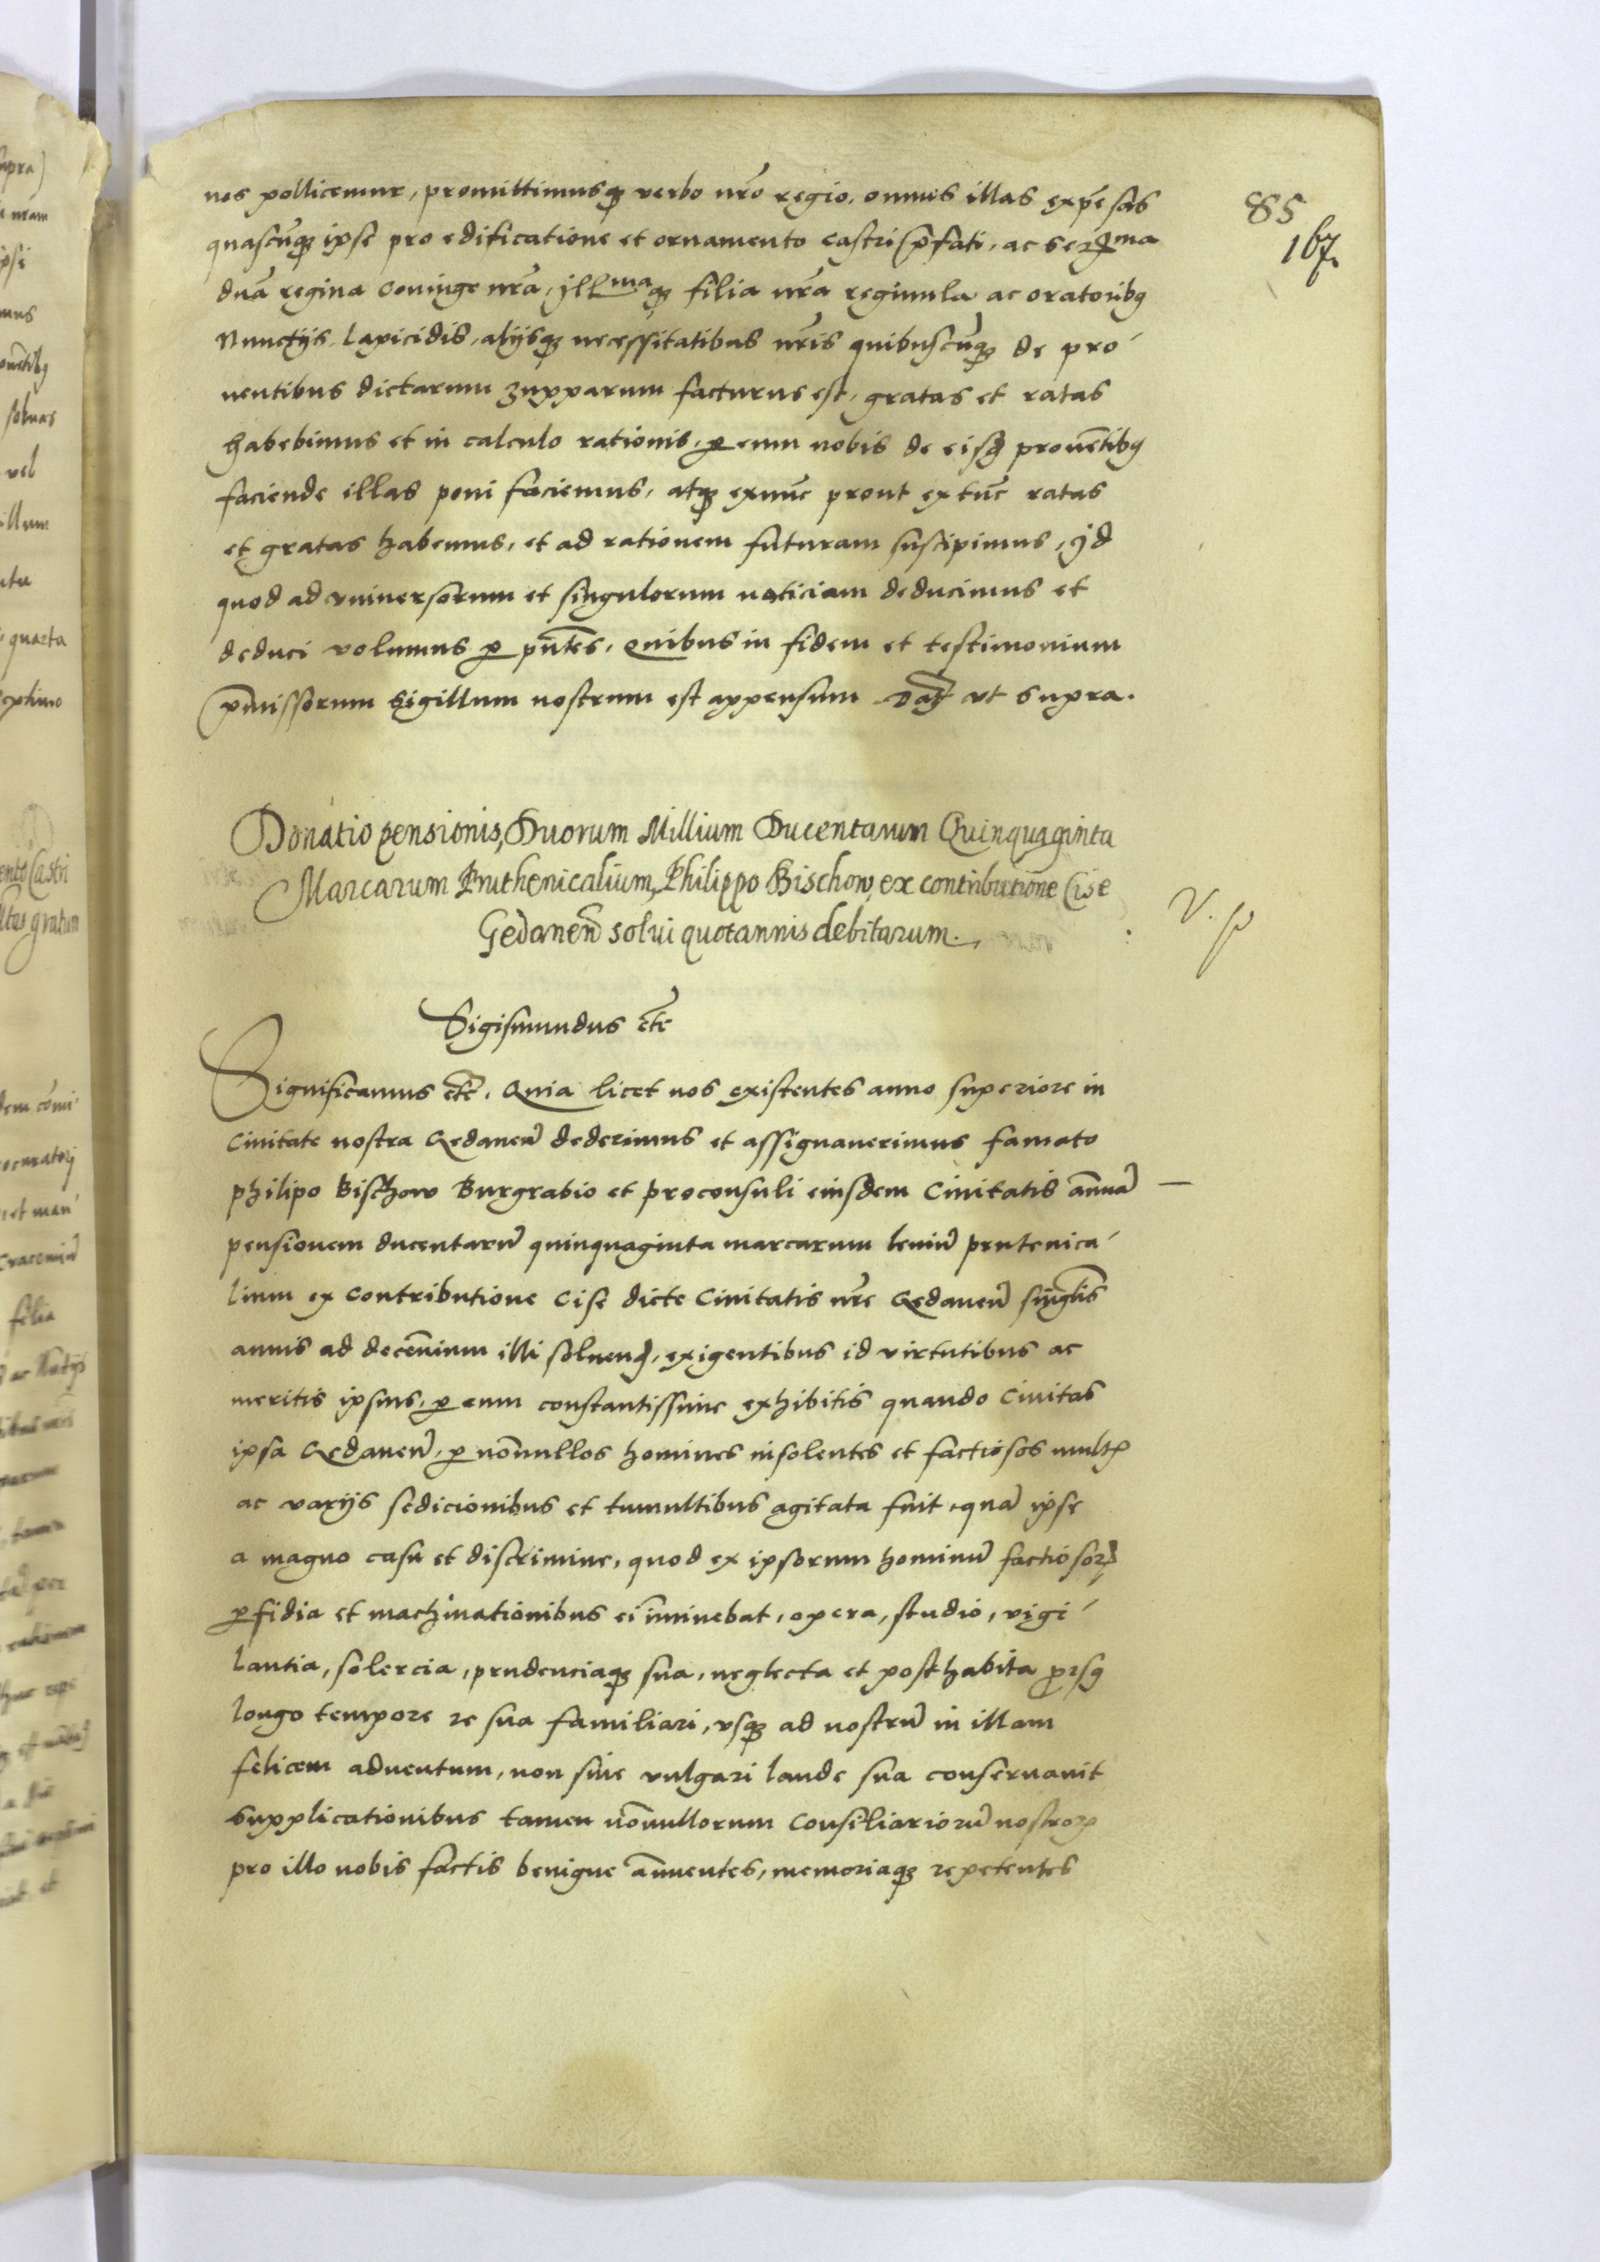 85
167.
nos pollicemur, promittimusq verbo nr̃o regio, omnes illas expẽsas
quascũq ipse pro edificatione et ornamento castri p̃fati, ac Serma
dnã regina coniuge nrã, illmaq filia nrã reginula ac oratoribq
Nunctijs Lapicidis, alijsq necessitatibus nr̃is quibuscũq de pro
uentibus dictarum zupparum facturus est, gratas et ratas
habebimus et in calculo rationis, p eum nobis de eisd prouẽtibq
faciende illas poni faciemus, atq exnũc prout extũc ratas
et gratas habemus, et ad rationem futuram suscipimus, Id
quod ad vniuersorum et singulorum noticiam deducimus et
deduci volumus p pñtes, Quibus in fidem et testimonium
p̃missorum Sigillum nostrum est appensum Dat ut supra.
Donatio pensionis, Duorum Millium Ducentarum Quinquaginta
Marcarum Pruthenicalium, Philippo Bischow, ex contributione Cise
Gedaneñ solui quotannis debitarum.
Sigismundus etc
Significamus etc. Quia licet nos existentes anno superiore in
Ciuitate nostra Gedaneñ dederimus et assignauerimus famato
philipo Bischow Burgrabio et proconsuli eiusdem Ciuitatis annuã
pensionem ducentarũ quinquaginta marcarum leuiũ prutenica
lium ex contributione Cise dicte Ciuitatis nr̃e Gedaneñ singlis
annis ad decẽnium illi soluend, exigentibus id virtutibus ac
meritis ipsius, p eum constantissime exhibitis quando Ciuitas
ipsa Gedaneñ, p nõnullos homines insolentes et factiosos mult
ac varijs sedicionibus et tumultibus agitata fuit, quã ipse
a magno casu et discrimine, quod ex ipsorum hominũ factiosor
pfidia et machinationibus ei iminebat, opera, studio, vigi
lantia, solercia, prudenciaq sua, neglecta et posthabita prsq
longo tempore re sua familiari, vsq ad nostrũ in illam
felicem aduentum, non sine vulgari laude sua conseruauit
Supplicationibus tamen nõnullorum Consiliariorũ nostror
pro illo nobis factis benigne ãnuentes, memoriaq repetentes